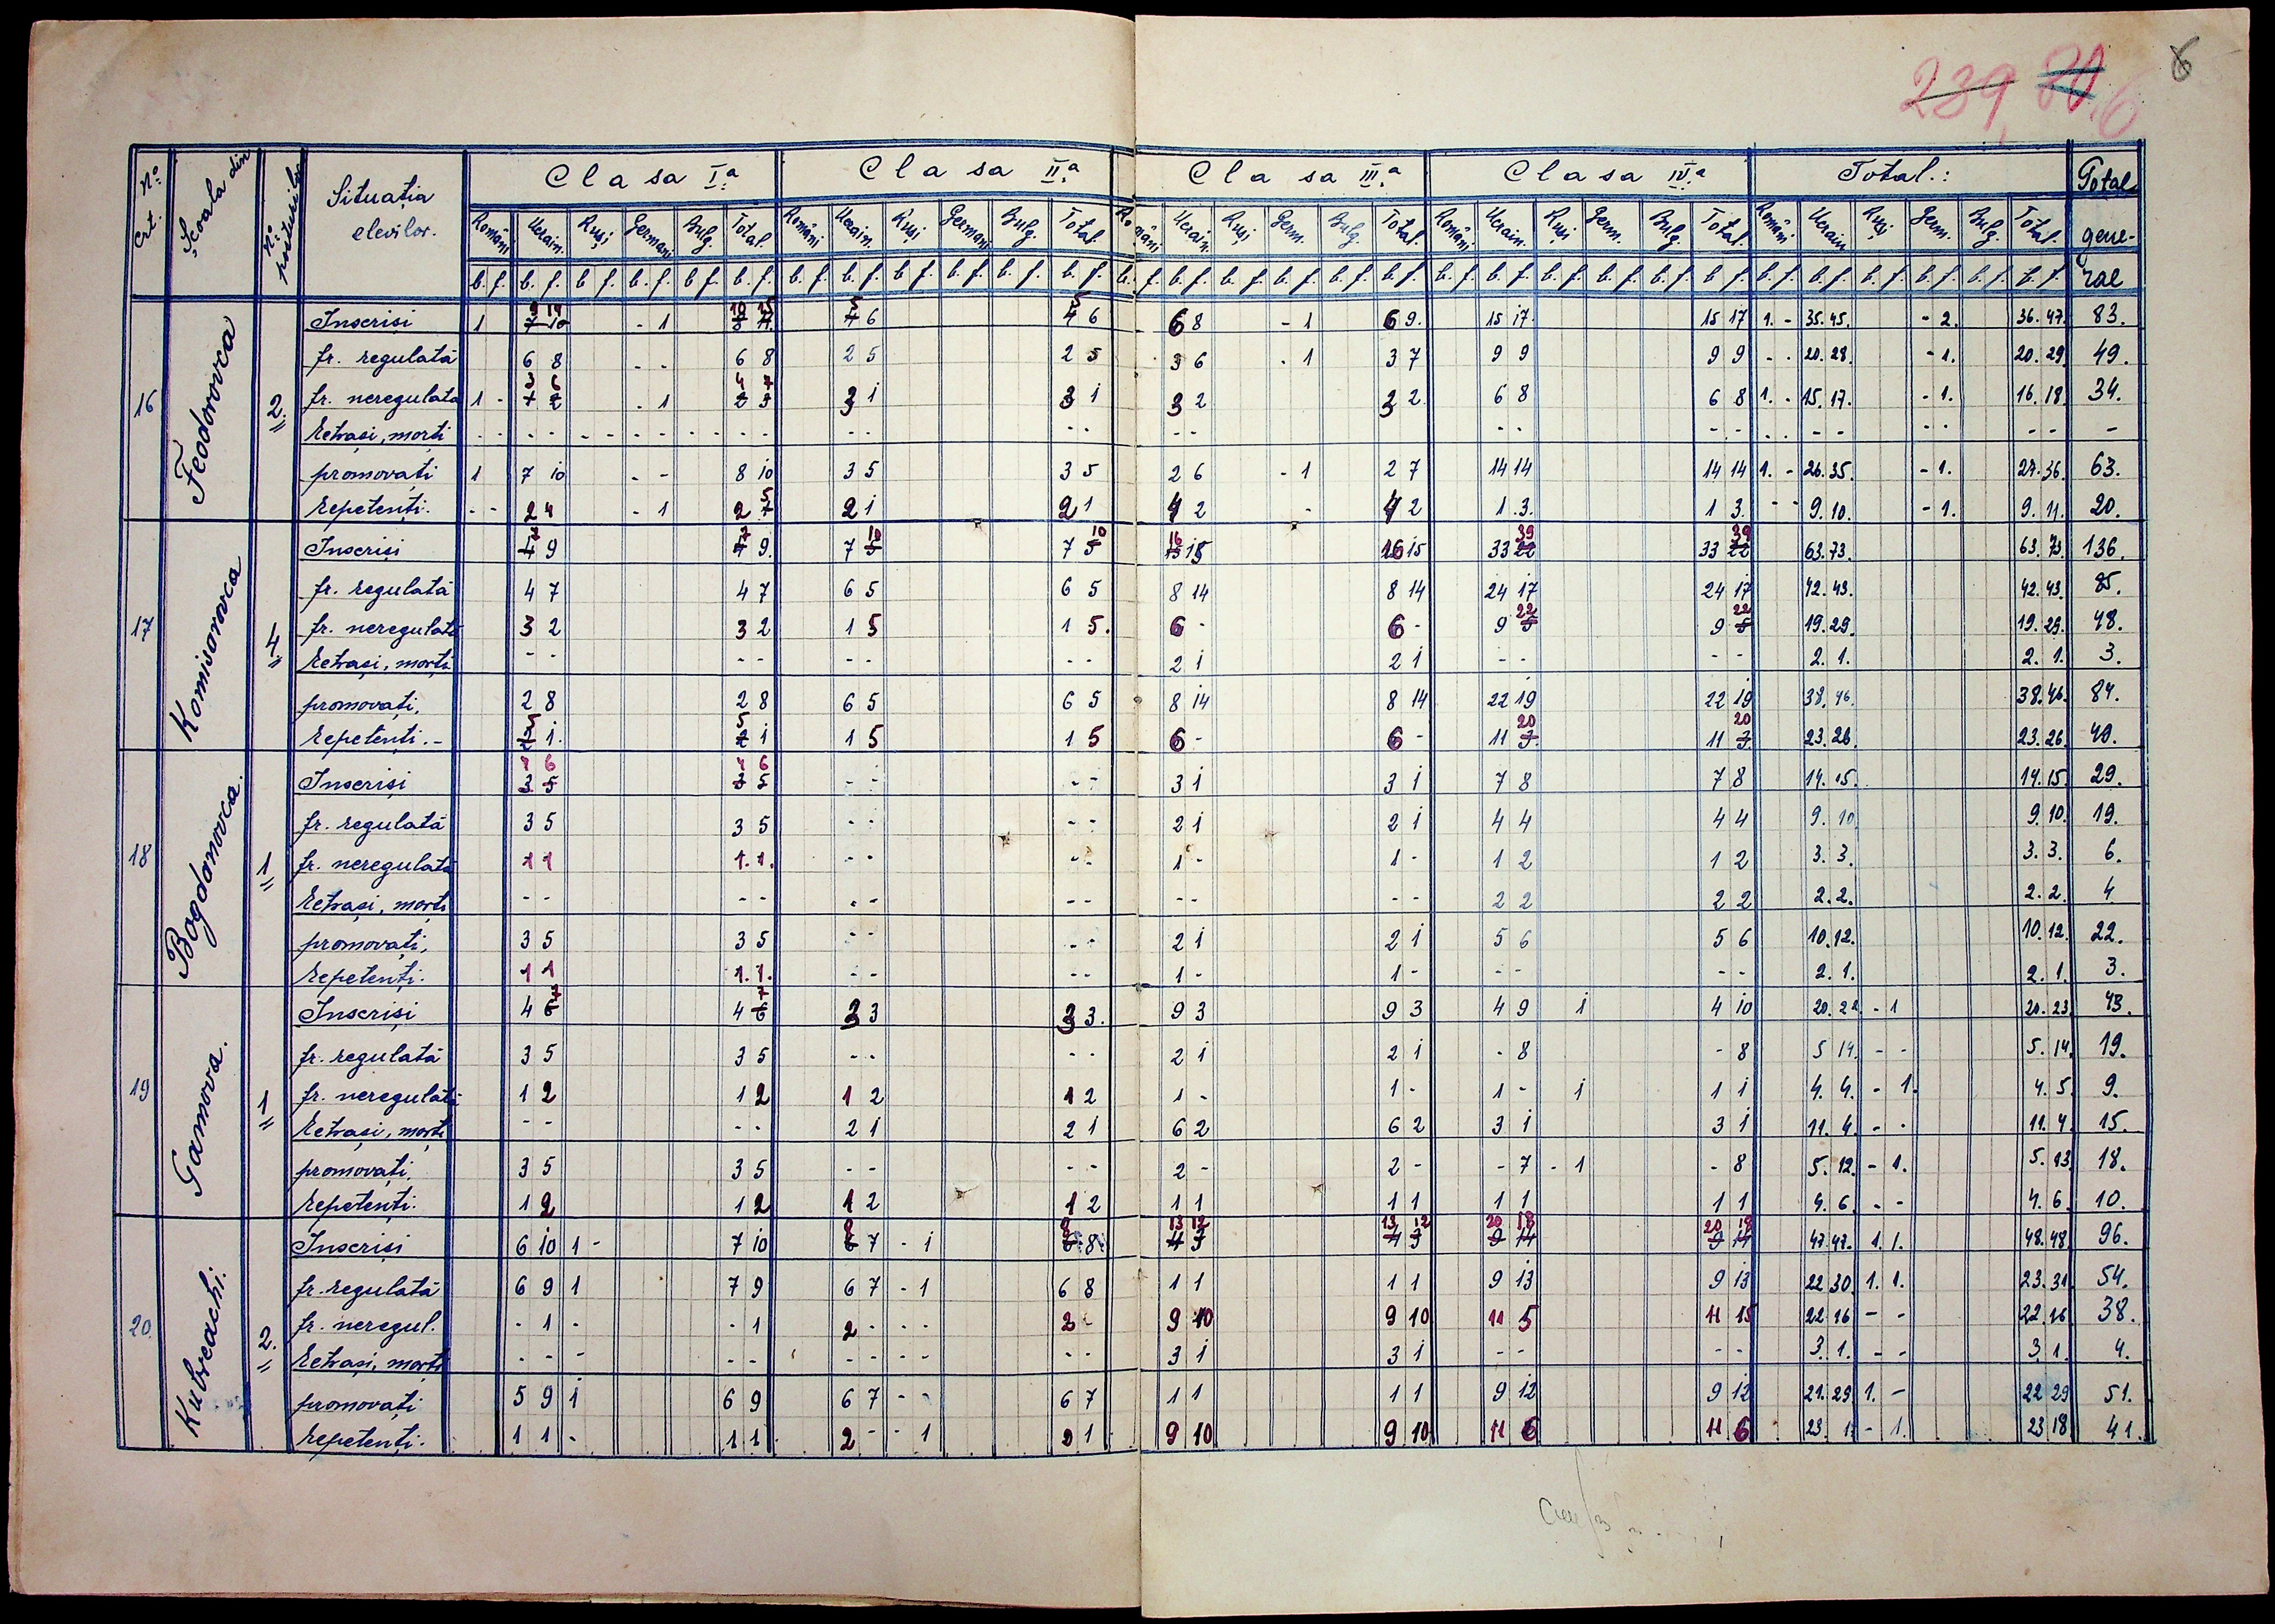 239, 80. 6 6
No: Crt. Școala din No: posturilor Situația elevilor. Clasa I.a Clasa II.a Clasa III.a Clasa IV.a Total.: Total gene-rae
Români Ucrain. Ruși Germani Bulg. Total. Români Ucrain. Ruși Germani Bulg. Total. Români Ucrain. Ruși Germ. Bulg. Total. Români Ucrain. Ruși Germ. Bulg. Total. Români Ucrain Ruși Germ. Bulg. Total.
b. f. b. f. b f. b. f. b f. b. f. b. f. b. f. b. f. b. f. b. f. b. f. b. f. b. f. b. f. b. f. b. f. b. f. b. f. b. f. b. f. b. f. b. f. b. f. b. f. b. f. b. f. b. f. b. f. b. f.
16 Feodorovca 2.
Inscriși 1 9 14 7 10 - 1 10 15 8 11 5 4 6 5 4 6 6 8 - 1 6 9. 15 17. 15 17 1. - 35. 45. - 2. 36. 47. 83.
fr. regulată 6 8 - - 6 8 2 5 2 5 3 6 - 1 3 7 9 9 9 9 - - 20. 28. - 1. 20. 29. 49.
fr. neregulata 1 - 3 6 1 2 - 1 4 7 2 3 3 1 3 1 3 2 3 2. 6 8 6 8 1. - 15. 17. - 1. 16. 18. 34.
Retrași, morți - - - - - - - - - - - - - - - - - - - - - - - - - - - - - - - -
promovați 1 7 10 - - 8 10 3 5 3 5 2 6 - 1 2 7 14 14 14 14 1. - 26. 35. - 1. 27. 36. 63.
Repetenți. - - 2 4 - 1 2 5 7 2 1 2 1 4 2 - 4 2 1. 3. 1 3. - - 9. 10. - 1. 9. 11. 20.
17 Komisarovca 4
Inscriși 7 4 9 7 4 9. 7 10 5 7 10 5 16 15 15 16 15 33 39 22 33 39 22 63. 73. 63. 73. 136.
fr. regulată 4 7 4 7 6 5 6 5 8 14 8 14 24 17 24 17 42. 43. 42. 43. 85.
fr. neregulată 3 2 3 2 1 5 1 5. 6 - 6 - 9 22 5 9 22 5 19. 29. 19. 29. 48.
Retrași, morți - - - - - - - - 2 1 2 1 - - - - 2. 1. 2. 1. 3.
promovați, 2 8 2 8 6 5 6 5 8 14 8 14 22 19 22 19 38. 46. 38. 46. 84.
Repetenți. - 5 2 1. 5 2 1 1 5 1 5 6 - 6 - 11 20 3. 11 20 3. 23. 26. 23. 26. 49.
18 Bogdanovca. 1
Inscriși 4 6 3 5 4 6 3 5 - - - - 3 1 3 1 7 8 7 8 14. 15. 14. 15. 29.
fr. regulată 3 5 3 5 - - - - 2 1 2 1 4 4 4 4 9. 10 9. 10. 19.
fr. neregulată 1 1 1. 1. - - - - 1 - 1 - 1 2 1 2 3. 3. 3. 3. 6.
Retrași, morți - - - - - - - - - - - - 2 2 2 2 2. 2. 2. 2. 4
promovați, 3 5 3 5 - - - - 2 1 2 1 5 6 5 6 10. 12. 10. 12. 22.
Repetenți. 1 1 1. 1. - - - - 1 - 1 - - - - - 2. 1. 2. 1. 3.
19 Gamova. 1
Inscriși 4 7 6 4 7 6 3 3 3 3. 9 3 9 3 4 9 1 4 10 20. 22 - 1 20. 23. 43.
fr. regulată 3 5 3 5 - - - - 2 1 2 1 - 8 - 8 5 14. - - 5. 14. 19.
fr. neregulată 1 2 1 2 1 2 1 2 1 - 1 - 1 - 1 1 1 4. 4. - 1. 4. 5. 9.
Retrași, morți - - - - 2 1 2 1 6 2 6 2 3 1 3 1 11. 4. - - 11. 4 15.
promovați, 3 5 3 5 - - - - 2 - 2 - - 7 - 1 - 8 5. 12. - 1. 5. 13 18.
Repetenți. 1 2 1 2 1 2 1 2 1 1 1 1 1 1 1 1 4. 6. - - 4. 6. 10.
20. Kubreachi. 2.
Inscriși 6 10 1 - 7 10 8 6 7 - 1 8 6 8 13 12 4 3 13 12 4 3 20 18 9 14 20 18 9 14 47. 47. 1. 1. 48. 48. 96.
fr. regulată 6 9 1 7 9 6 7 - 1 6 8 1 1 1 1 9 13 9 13 22. 30. 1. 1. 23. 31. 54.
fr. neregul. - 1 - - 1 2 - - - 2 - 9 10 9 10 11 5 11 15 22 16 - - 22. 16 38.
Retrași, morți - - - - - - - - - - - 3 1 3 1 - - - - 3. 1. - - 3. 1. 4.
promovați 5 9 1 6 9 6 7 - - 6 7 1 1 1 1 9 12 9 12 21. 29. 1. - 22 29 51.
Repetenți. 1 1 - 1 1 2 - - 1 2 1 9 10 9 10 11 6 11 6 23 1. - 1. 23 18 41.